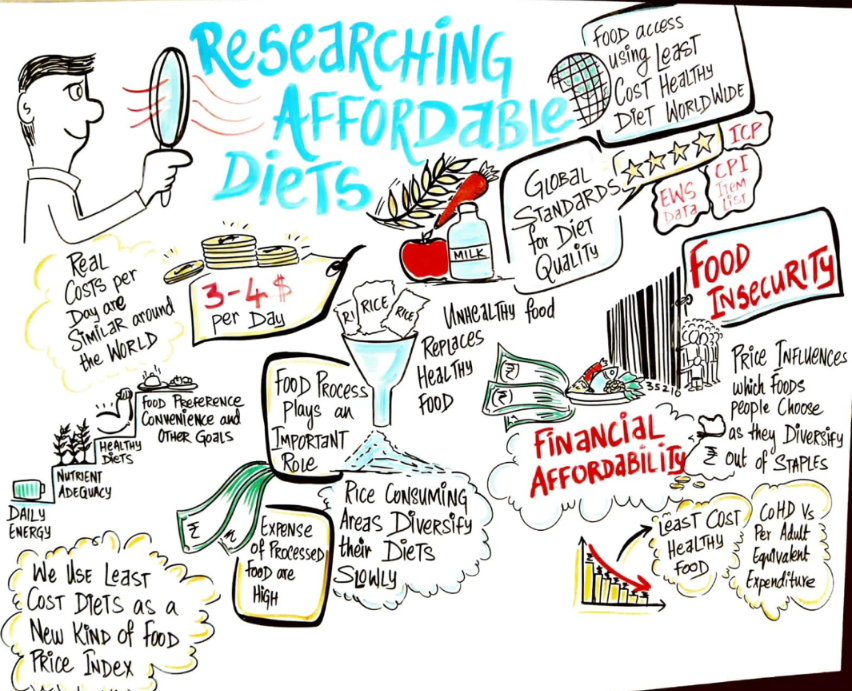 RESEARCHING
AFFORDABLE
DIETS
FOOD ACCESS
using LEAST
COST HEALTHY
DIET WORLDWIDE
ICP
CPI
ITEM
LIST
EWS
DATA
GLOBAL
STANDARDS
for DIET
QUALITY
MILK
REAL
COSTS per
DAY are
SIMILAR around
the WORLD
3-4 $
per DAY
RICE
RICE
UNHEALTHY food
REPLACES
HEALTHY
FOOD
FOOD
INSECURITY
35210
PRICE INFLUENCES
which FOODS
people CHOOSE
as they DIVERSIFY
out of STAPLES
₹
FINANCIAL
AFFORDABILITY
FOOD PROCESS
plays an
IMPORTANT
ROLE
FOOD PREFERENCE
CONVENIENCE and
OTHER GOALS
HEALTHY
DIETS
NUTRIENT
ADEQUACY
DAILY
ENERGY
EXPENSE
of PROCESSED
food are
HIGH
RICE CONSUMING
AREAS DIVERSIFY
their DIETS
SLOWLY
LEAST COST
HEALTHY
FOOD
COHD Vs
Per Adult
Equivalent
Expenditure
WE USE LEAST
COST DIETS as a
NEW KIND of FOOD
PRICE INDEX